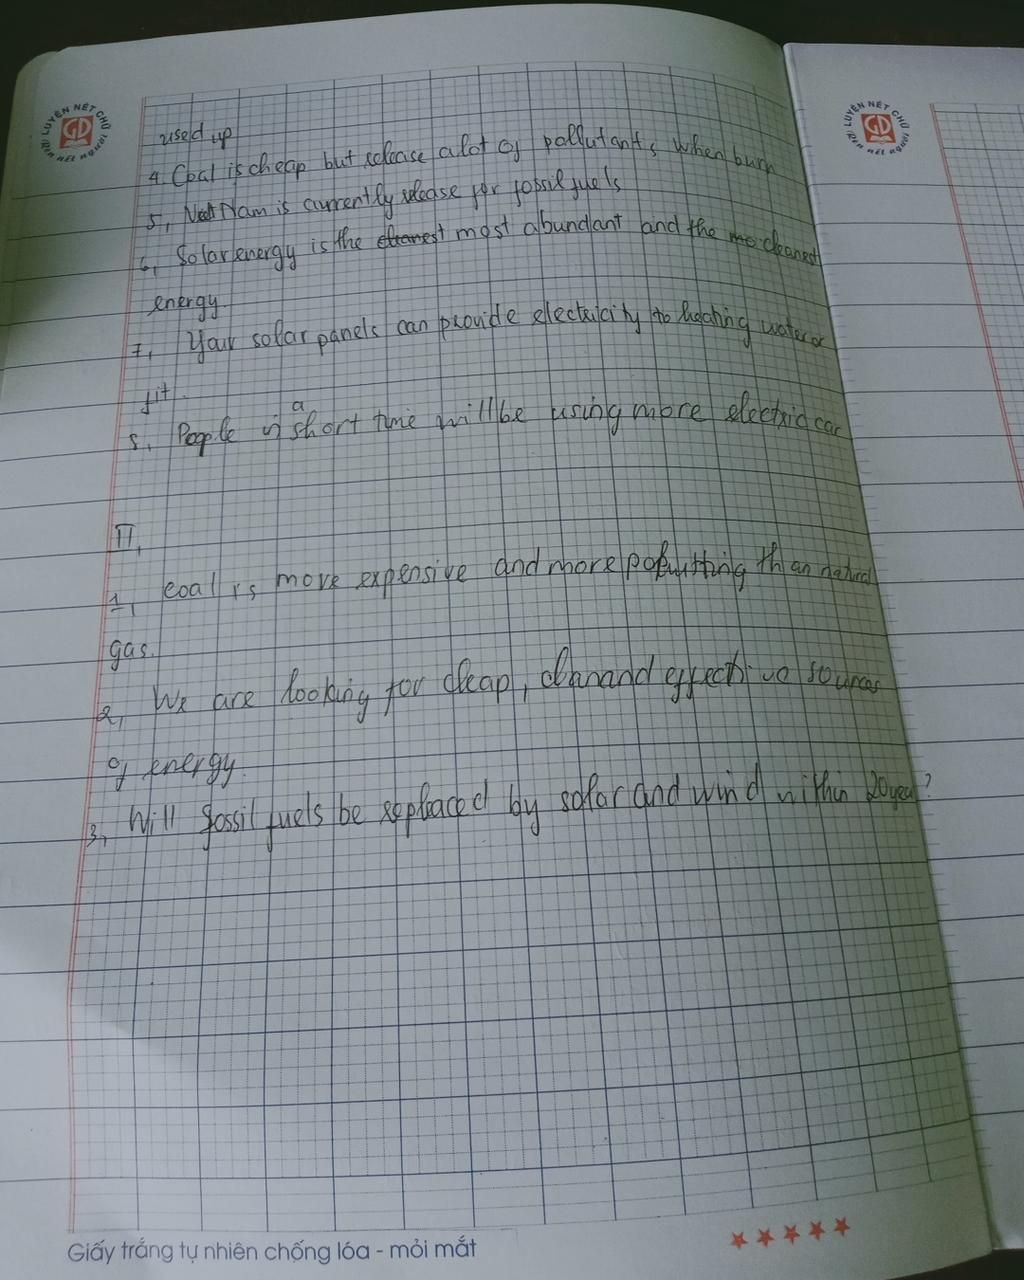 LUYỆN NÉT CHỮ
GD
RÈN NẾT NGƯỜI
LUYỆN NÉT CHỮ
GD
RÈN NẾT NGƯỜI
used up
4. Coal is cheap but release a lot of pollutants when burn
5, Viet Nam is currently release for fossil fuels
6, Solar energy is the cleanest most abundant and the mo cleanest
energy.
7, Your solar panels can provide electricity to heating water or
fit.
8, People in a short time will be using more electric car
II,
1, coal is more expensive and more pollutting than natural
gas.
2, We are looking for cheap, clean and effective sources
of energy.
3, Will fossil fuels be replaced by solar and wind within 20 year?
Giấy trắng tự nhiên chống lóa - mỏi mắt